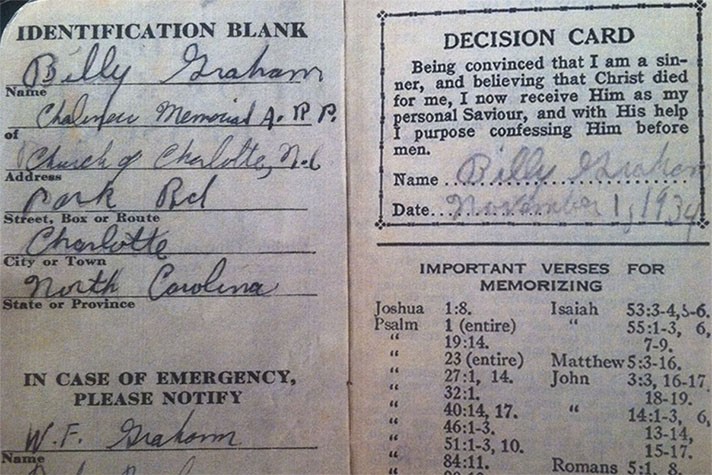 IDENTIFICATION BLANK
Billy Graham
Name
Chalmers Memorial A. R. P.
of
Church of Charlotte, N.C
Address
Park Rd
Street, Box or Route
Charlotte
City or Town
North Carolina
State or Province
IN CASE OF EMERGENCY,
PLEASE NOTIFY
W. F. Graham
Name
DECISION CARD
Being convinced that I am a sin-
ner, and believing that Christ died
for me, I now receive Him as my
personal Saviour, and with His help
I purpose confessing Him before
men.
Name Billy Graham
Date November 1, 1934
IMPORTANT VERSES FOR
MEMORIZING
Joshua 1:8. Isaiah 53:3-4, 5-6.
Psalm 1 (entire) " 55:1-3, 6,
" 19:14. 7-9.
" 23 (entire) Matthew 5:3-16.
" 27:1, 14. John 3:3, 16-17,
" 32:1. 18-19.
" 40:14, 17. " 14:1-3, 6,
" 46:1-3. 13-14,
" 51:1-3, 10. 15-17.
" 84:11. Romans 5:1, 8.